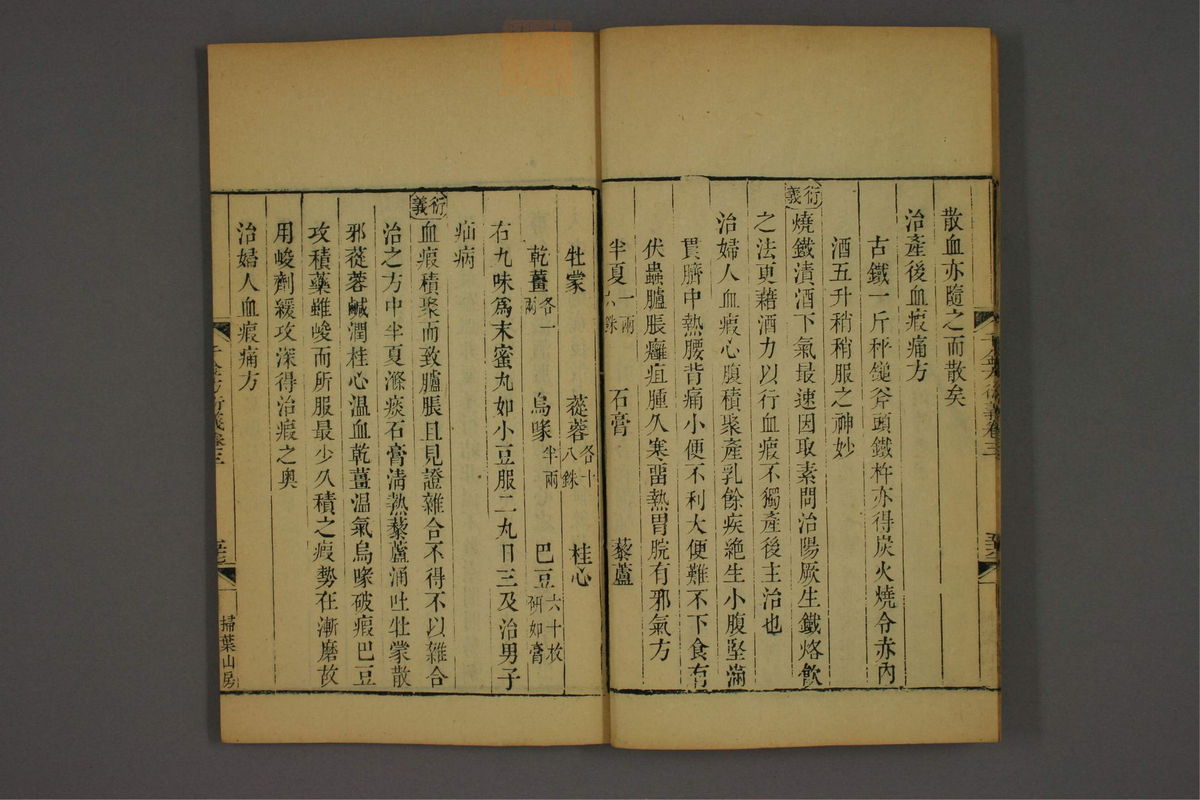 散血亦隨之而散矣
治產後血瘕痛方
古鐵一斤秤鎚斧頭鐵杵亦得炭火燒令赤內
酒五升稍稍服之神妙
衍義
燒鐵漬酒下氣最速因取素問治陽厥生鐵烙飲
之法更藉酒力以行血瘕不獨產後主治也
治婦人血瘕心腹積聚產乳餘疾絶生小腹堅滿
貫臍中熱腰背痛小便不利大便難不下食有
伏蟲臚脹癰疽腫久寒畱熱胃脘有邪氣方
半夏一兩六銖 石膏 藜蘆
牡蒙 蓯蓉各十八銖 桂心
乾薑各一兩 烏喙半兩 巴豆六十枚研如膏
右九味爲末蜜丸如小豆服二丸日三及治男子
疝病
衍義
血瘕積聚而致臚脹且見證雜合不得不以雜合
治之方中半夏滌痰石膏清熱藜蘆涌吐牡蒙散
邪蓯蓉鹹潤桂心温血乾薑温氣烏喙破瘕巴豆
攻積藥雖峻而所服最少久積之瘕勢在漸磨故
用峻劑緩攻深得治瘕之奥
治婦人血瘕痛方
千金方衍義卷三
掃葉山房